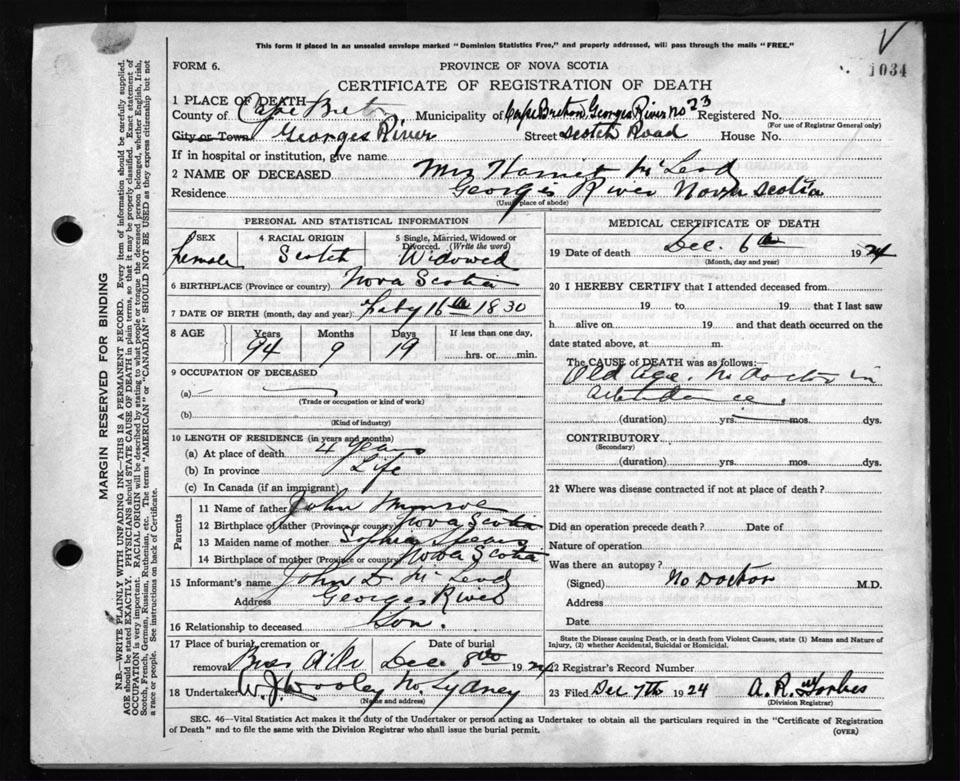 This form if placed in an unsealed envelope marked "Dominion Statistics Free," and properly addressed, will pass through the mails "FREE."
1034
FORM 6.
PROVINCE OF NOVA SCOTIA
CERTIFICATE OF REGISTRATION OF DEATH
1 PLACE OF DEATH
County of Cape Breton Municipality of Cape Breton Georges River No 23 Registered No.
(For use of Registrar General only)
City or Town Georges River Street Scotch Road House No.
If in hospital or institution, give name
2 NAME OF DECEASED Mrs Harriet McLeod
Residence Georges River Nova Scotia
(Usual place of abode)
PERSONAL AND STATISTICAL INFORMATION
3 SEX 4 RACIAL ORIGIN 5 Single, Married, Widowed or Divorced. (Write the word)
Female Scotch Widowed
6 BIRTHPLACE (Province or country) Nova Scotia
7 DATE OF BIRTH (month, day and year) 16th 1830
8 AGE Years Months Days If less than one day,
94 9 19 hrs. or min.
9 OCCUPATION OF DECEASED
(a)
(Trade or occupation or kind of work)
(b)
(Kind of industry)
10 LENGTH OF RESIDENCE (in years and months)
(a) At place of death 4 Years
(b) In province Life
(c) In Canada (if an immigrant)
Parents
11 Name of father John Munroe
12 Birthplace of father (Province or country) Nova Scotia
13 Maiden name of mother Sophia
14 Birthplace of mother (Province or country) Nova Scotia
15 Informant's name John D McLeod
Address Georges River
16 Relationship to deceased Son.
17 Place of burial, cremation or removal Date of burial
Dec. 8th 1924
18 Undertaker W. J. Dooley No. Sydney
(Name and address)
MEDICAL CERTIFICATE OF DEATH
19 Date of death Dec. 6th 1924
(Month, day and year)
20 I HEREBY CERTIFY that I attended deceased from
19 to 19 that I last saw
h alive on 19 and that death occurred on the
date stated above, at m.
The CAUSE of DEATH was as follows:
Old age. No doctor in
attendance.
(duration) yrs. mos. dys.
CONTRIBUTORY
(Secondary)
(duration) yrs. mos. dys.
21 Where was disease contracted if not at place of death?
Did an operation precede death? Date of
Nature of operation
Was there an autopsy?
(Signed) No Doctor M.D.
Address
Date
State the Disease causing Death, or in death from Violent Causes, state (1) Means and Nature of
Injury, (2) whether Accidental, Suicidal or Homicidal.
22 Registrar's Record Number
23 Filed Dec 7th 1924 A. R. Forbes
(Division Registrar)
SEC. 46—Vital Statistics Act makes it the duty of the Undertaker or person acting as Undertaker to obtain all the particulars required in the "Certificate of Registration
of Death" and to file the same with the Division Registrar who shall issue the burial permit.
(OVER)
MARGIN RESERVED FOR BINDING
N.B.—WRITE PLAINLY WITH UNFADING INK—THIS IS A PERMANENT RECORD. Every item of information should be carefully supplied.
AGE should be stated EXACTLY. PHYSICIANS should STATE CAUSE OF DEATH in plain terms, so that it may be properly classified. Exact statement of
OCCUPATION is very important. RACIAL ORIGIN will be described by stating to what people or tongue the deceased person belonged, whether English, Irish,
Scotch, French, German, Russian, Ruthenian, etc. The terms "AMERICAN" or "CANADIAN" SHOULD NOT BE USED as they express citizenship but not
a race or people. See instructions on back of Certificate.